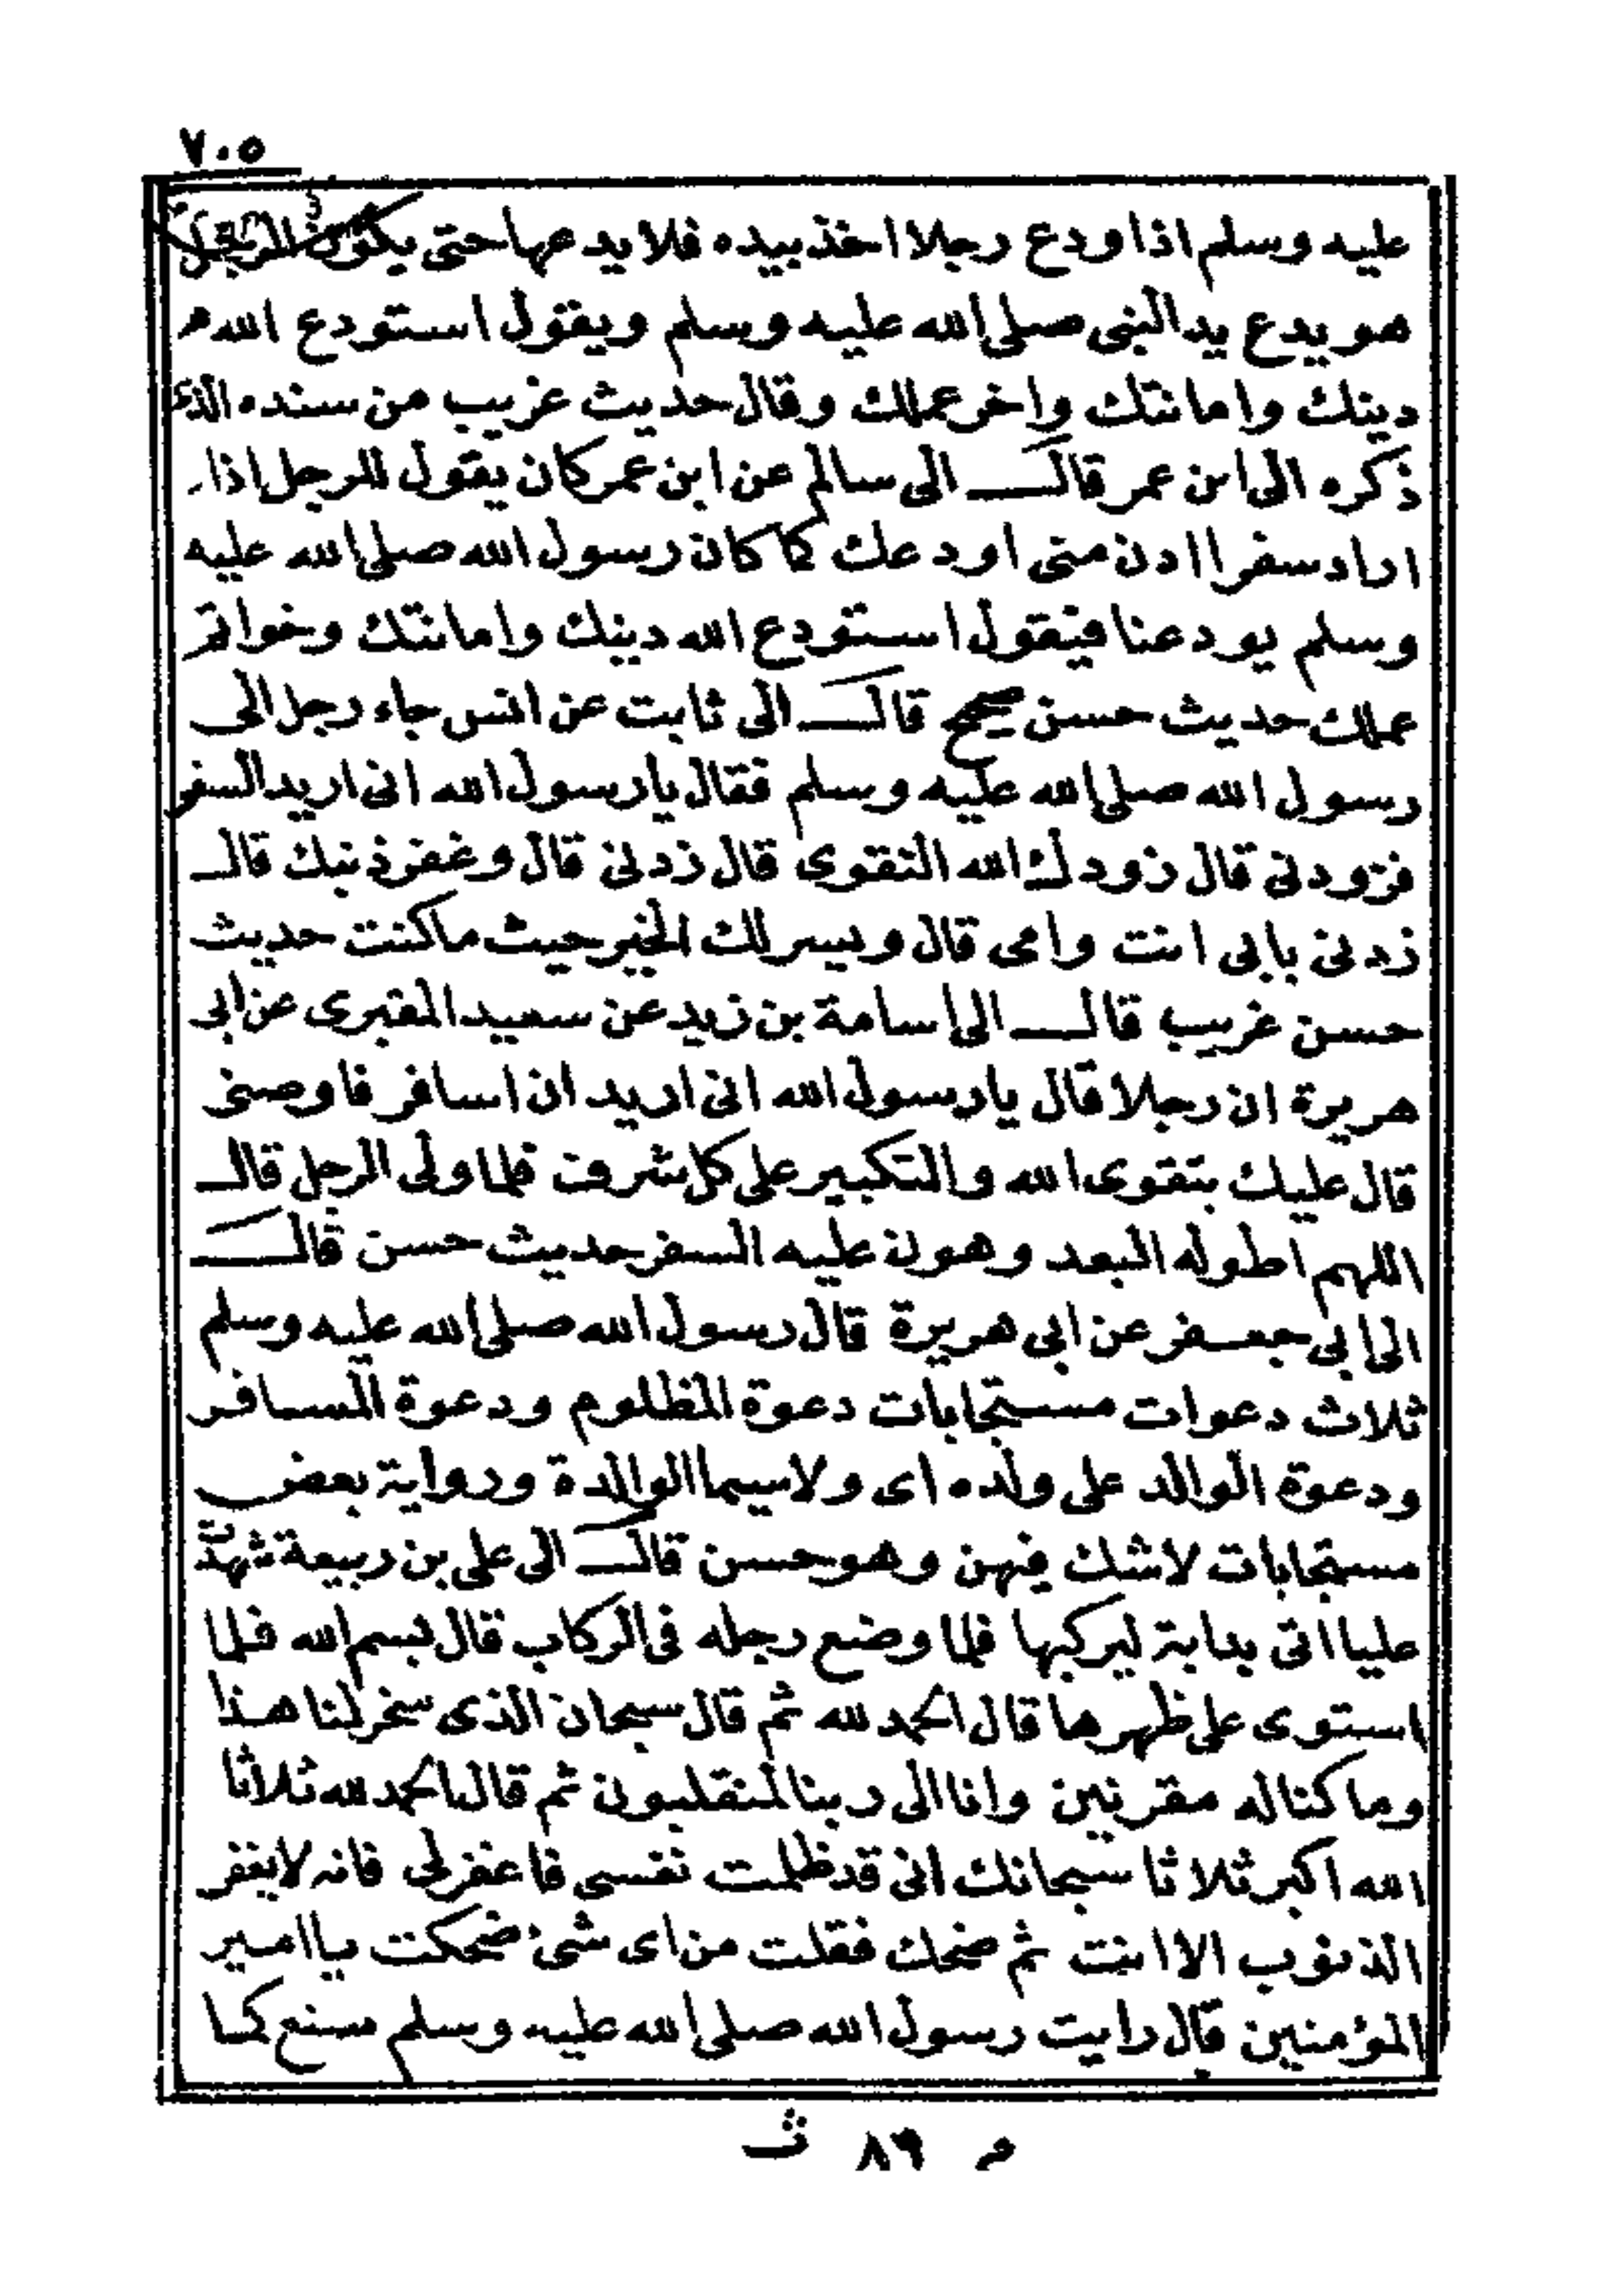 ٧٠٥
عليه وسلم اذا ودع رجلا اخذ بيده فلا يدعها حتى يكون الرجل
هو يدع يد النبى صلى الله عليه وسلم ويقول استودع الله
دينك وامانتك واخر عملك وقال حديث غريب من سنده الذى
ذكره الى ابن عمر قال الى سالم عن ابن عمر كان يقول للرجل اذا
اراد سفرا ادن منى اودعك كما كان رسول الله صلى الله عليه
وسلم يودعنا فيقول استودع الله دينك وامانتك وخواتم
عملك حديث حسن صحيح قال الى ثابت عن انس جاء رجل الى
رسول الله صلى الله عليه وسلم فقال يا رسول الله انى اريد السفر
فزودنى قال زودك الله التقوى قال زدنى قال وغفر ذنبك قال
زدنى بابى انت وامى قال ويسر لك الخير حيث ما كنت حديث
حسن غريب قال الى اسامة بن زيد عن سعيد المقبرى عن ابى
هريرة ان رجلا قال يا رسول الله انى اريد ان اسافر فاوصنى
قال عليك بتقوى الله والتكبير على كل شرف فلما ولى الرجل قال
اللهم اطو له البعد وهون عليه السفر حديث حسن قال
الى ابى جعفر عن ابى هريرة قال رسول الله صلى الله عليه وسلم
ثلاث دعوات مستجابات دعوة المظلوم ودعوة المسافر
ودعوة الوالد على ولده اى ولا سيما الوالدة ورواية بعض
مستجابات لا شك فيهن وهو حسن قال الى على بن ربيعة شهدت
عليا اتى بدابة ليركبها فلما وضع رجله فى الركاب قال بسم الله فلما
استوى على ظهرها قال الحمد لله ثم قال سبحان الذى سخر لنا هذا
وما كنا له مقرنين وانا الى ربنا لمنقلبون ثم قال الحمد لله ثلاثا
الله اكبر ثلاثا سبحانك انى قد ظلمت نفسى فاغفر لى فانه لا يغفر
الذنوب الا انت ثم ضحك فقلت من اى شئ ضحكت يا امير
المؤمنين قال رايت رسول الله صلى الله عليه وسلم صنع كما
م ٨٩ ث